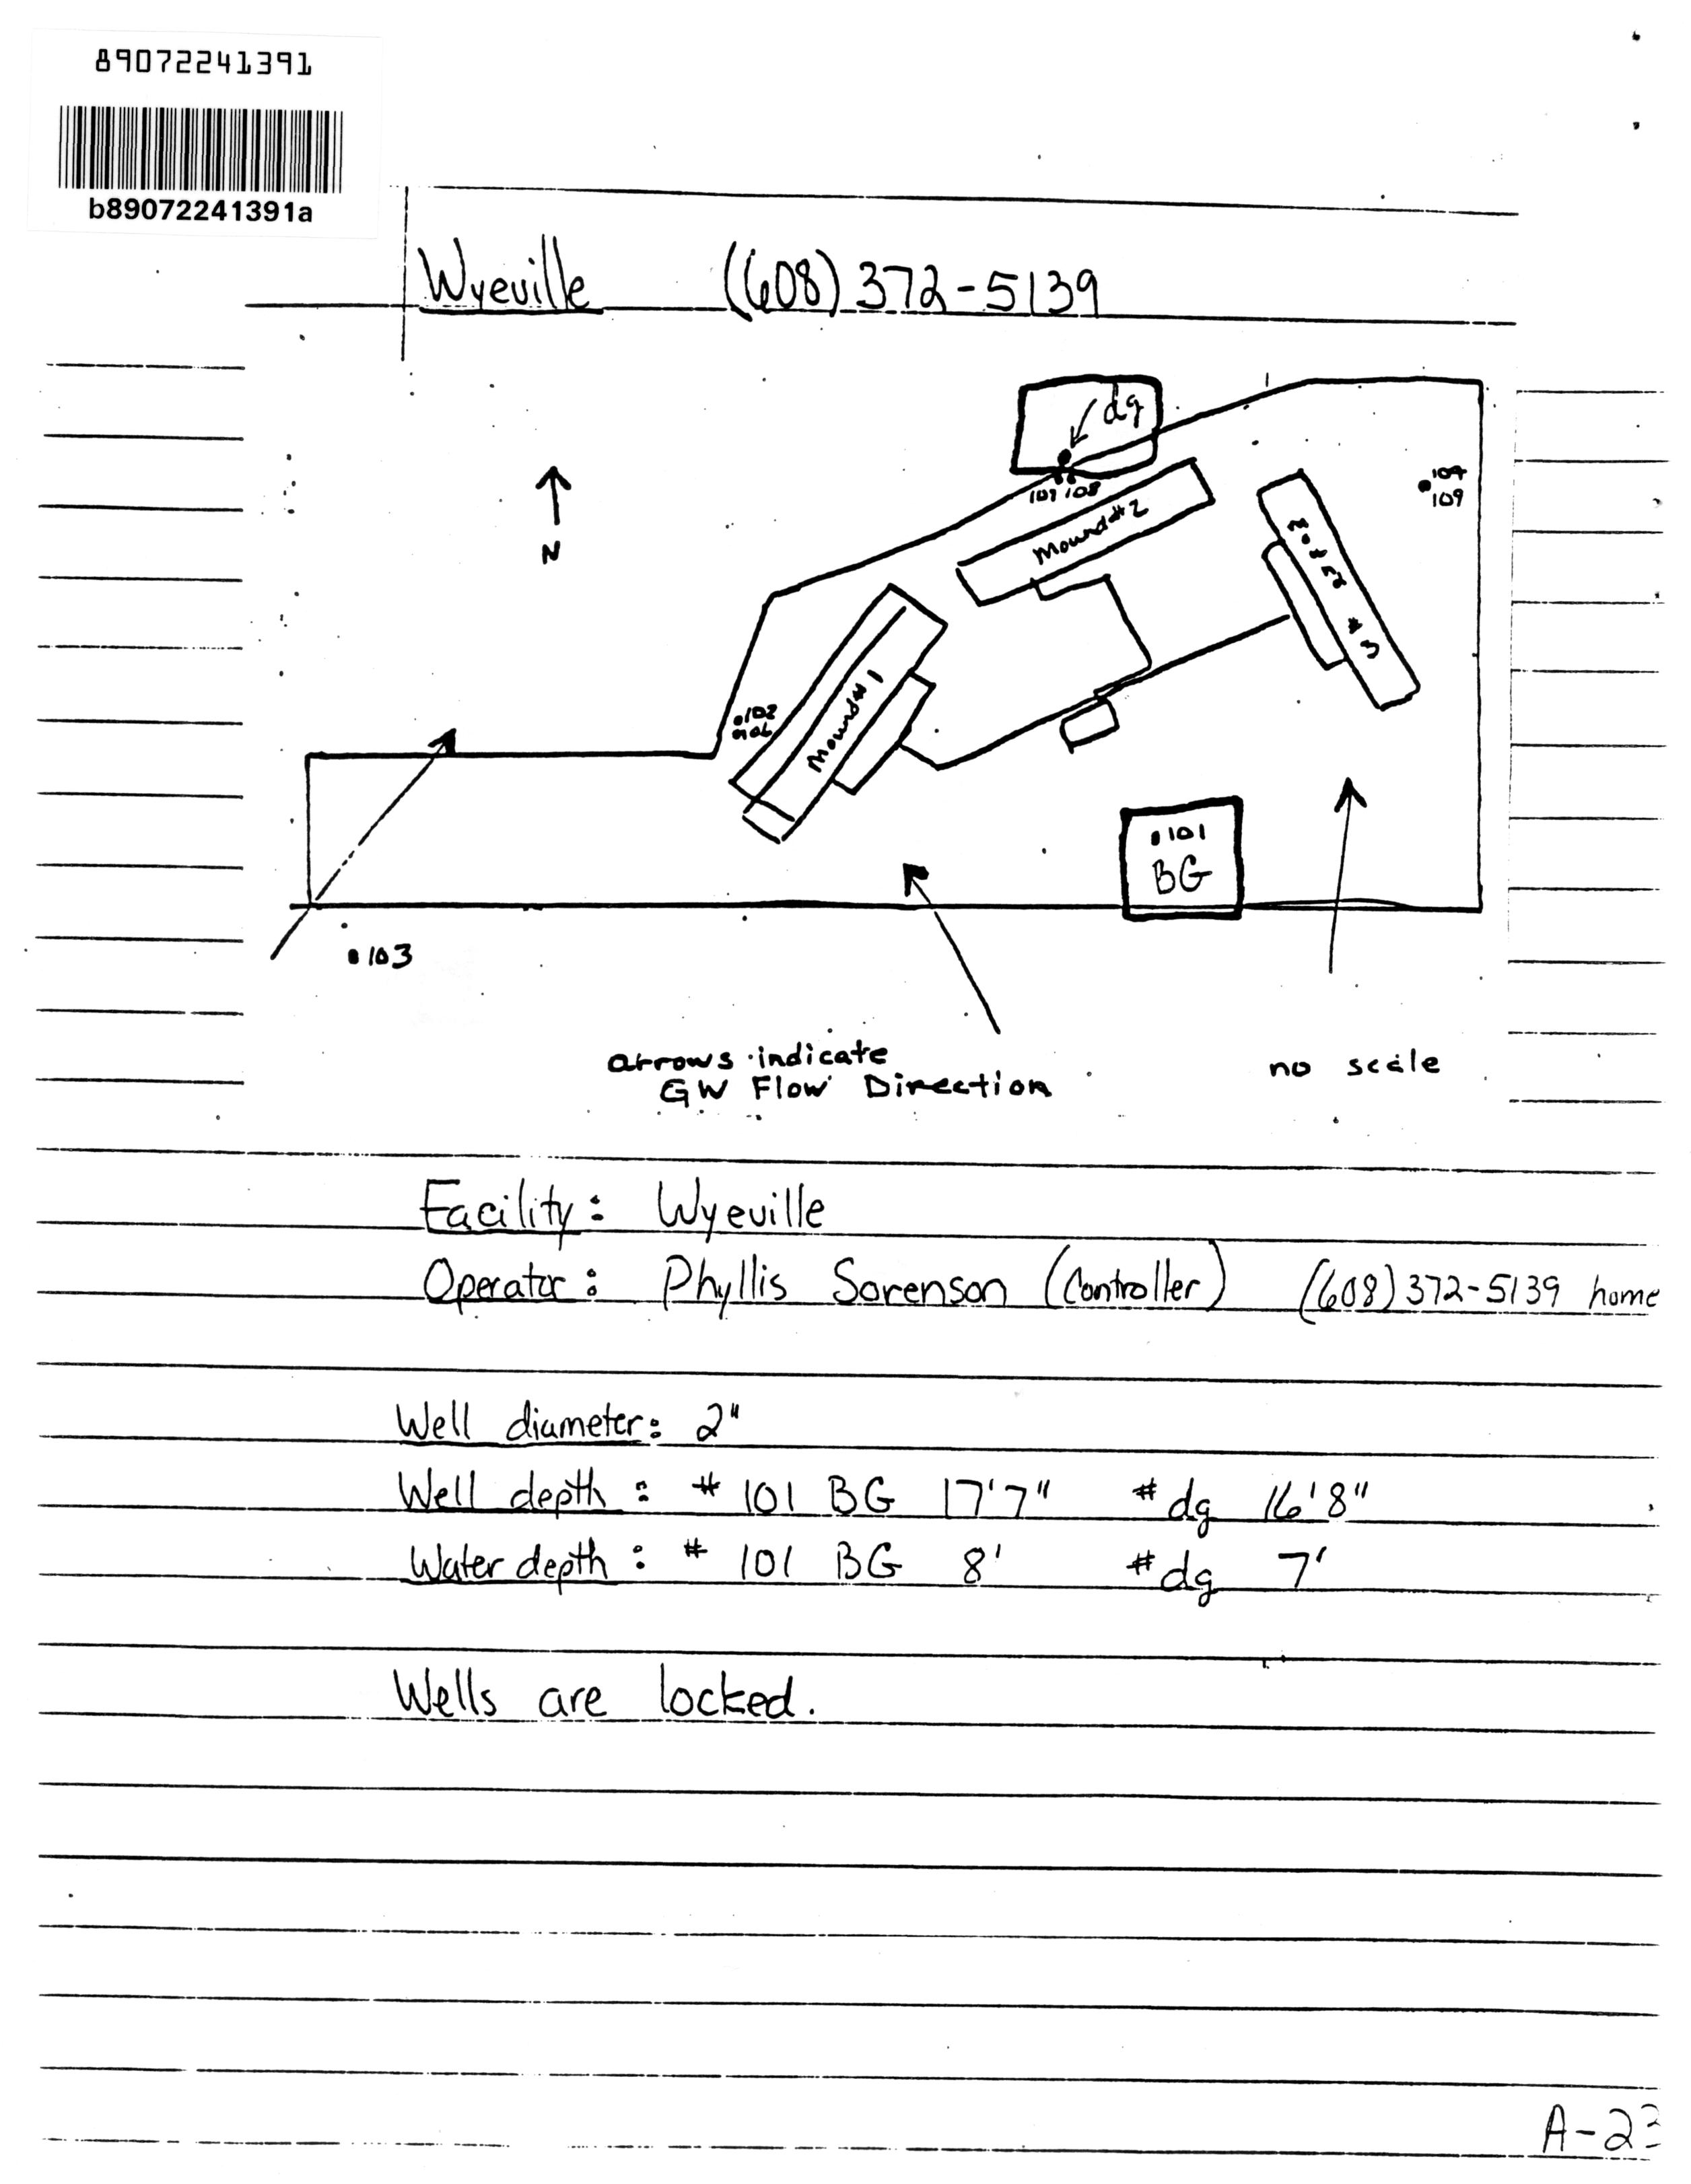 89072241391
b89072241391a
Wyeville (608) 372-5139
dg
107 108
109
Mound #2
N
Mound #1
#3
.102
.101
BG
.103
arrows indicate
GW Flow Direction
no scale
Facility: Wyeville
Operator: Phyllis Sorenson (Controller) (608) 372-5139 home
Well diameter: 2"
Well depth: # 101 BG 17'7" # dg 16'8"
Water depth: # 101 BG 8' # dg 7'
Wells are locked.